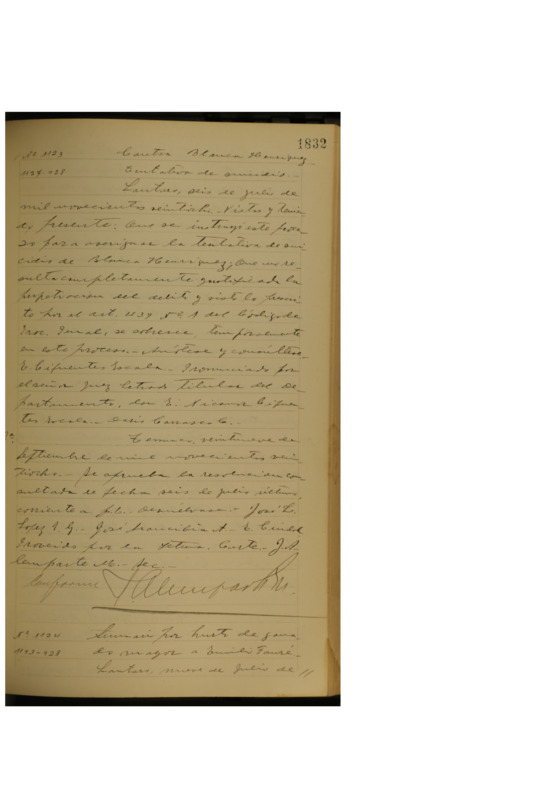 1832
Nº 1123 Contra Blanca Henriquez
1184-928 Tentativa de suicidio
Lautaro, seis de julio de
mil novecientos veintiocho. Vistos y tenien
do presente; Que se instruyó este proce
so para averiguar la tentativa de sui
cidio de Blanca Henriquez; Que no re
sulta completamente justificada la
perpetracion del delito y visto lo prescri
to por el art. 439 Nº 1 del Código de
Proc. Penal, se sobresee temporalmente
en este proceso. Anótese y consúltese
E. Cifuentes Zocala. Pronunciado por
el señor Juez Letrado Titular del De
partamento, don E. Nicanor Cifuen
tes Luis Carrasco C.
Temuco, veintinueve de
Septiembre de mil novecientos vein
tiocho. Se aprueba la resolucion con
sultada de fecha seis de julio último,
corriente a fs. Devuélvase. José L.
Lopez José Francisco A.
Proveido por la Iltma. Corte. J. A.
Lamparte M. Sec.
Conforme
Nº 1124 Sumario por hurto de gana
1193-928 do mayor a Emilio Fauré
Lautaro, nueve de Julio de //